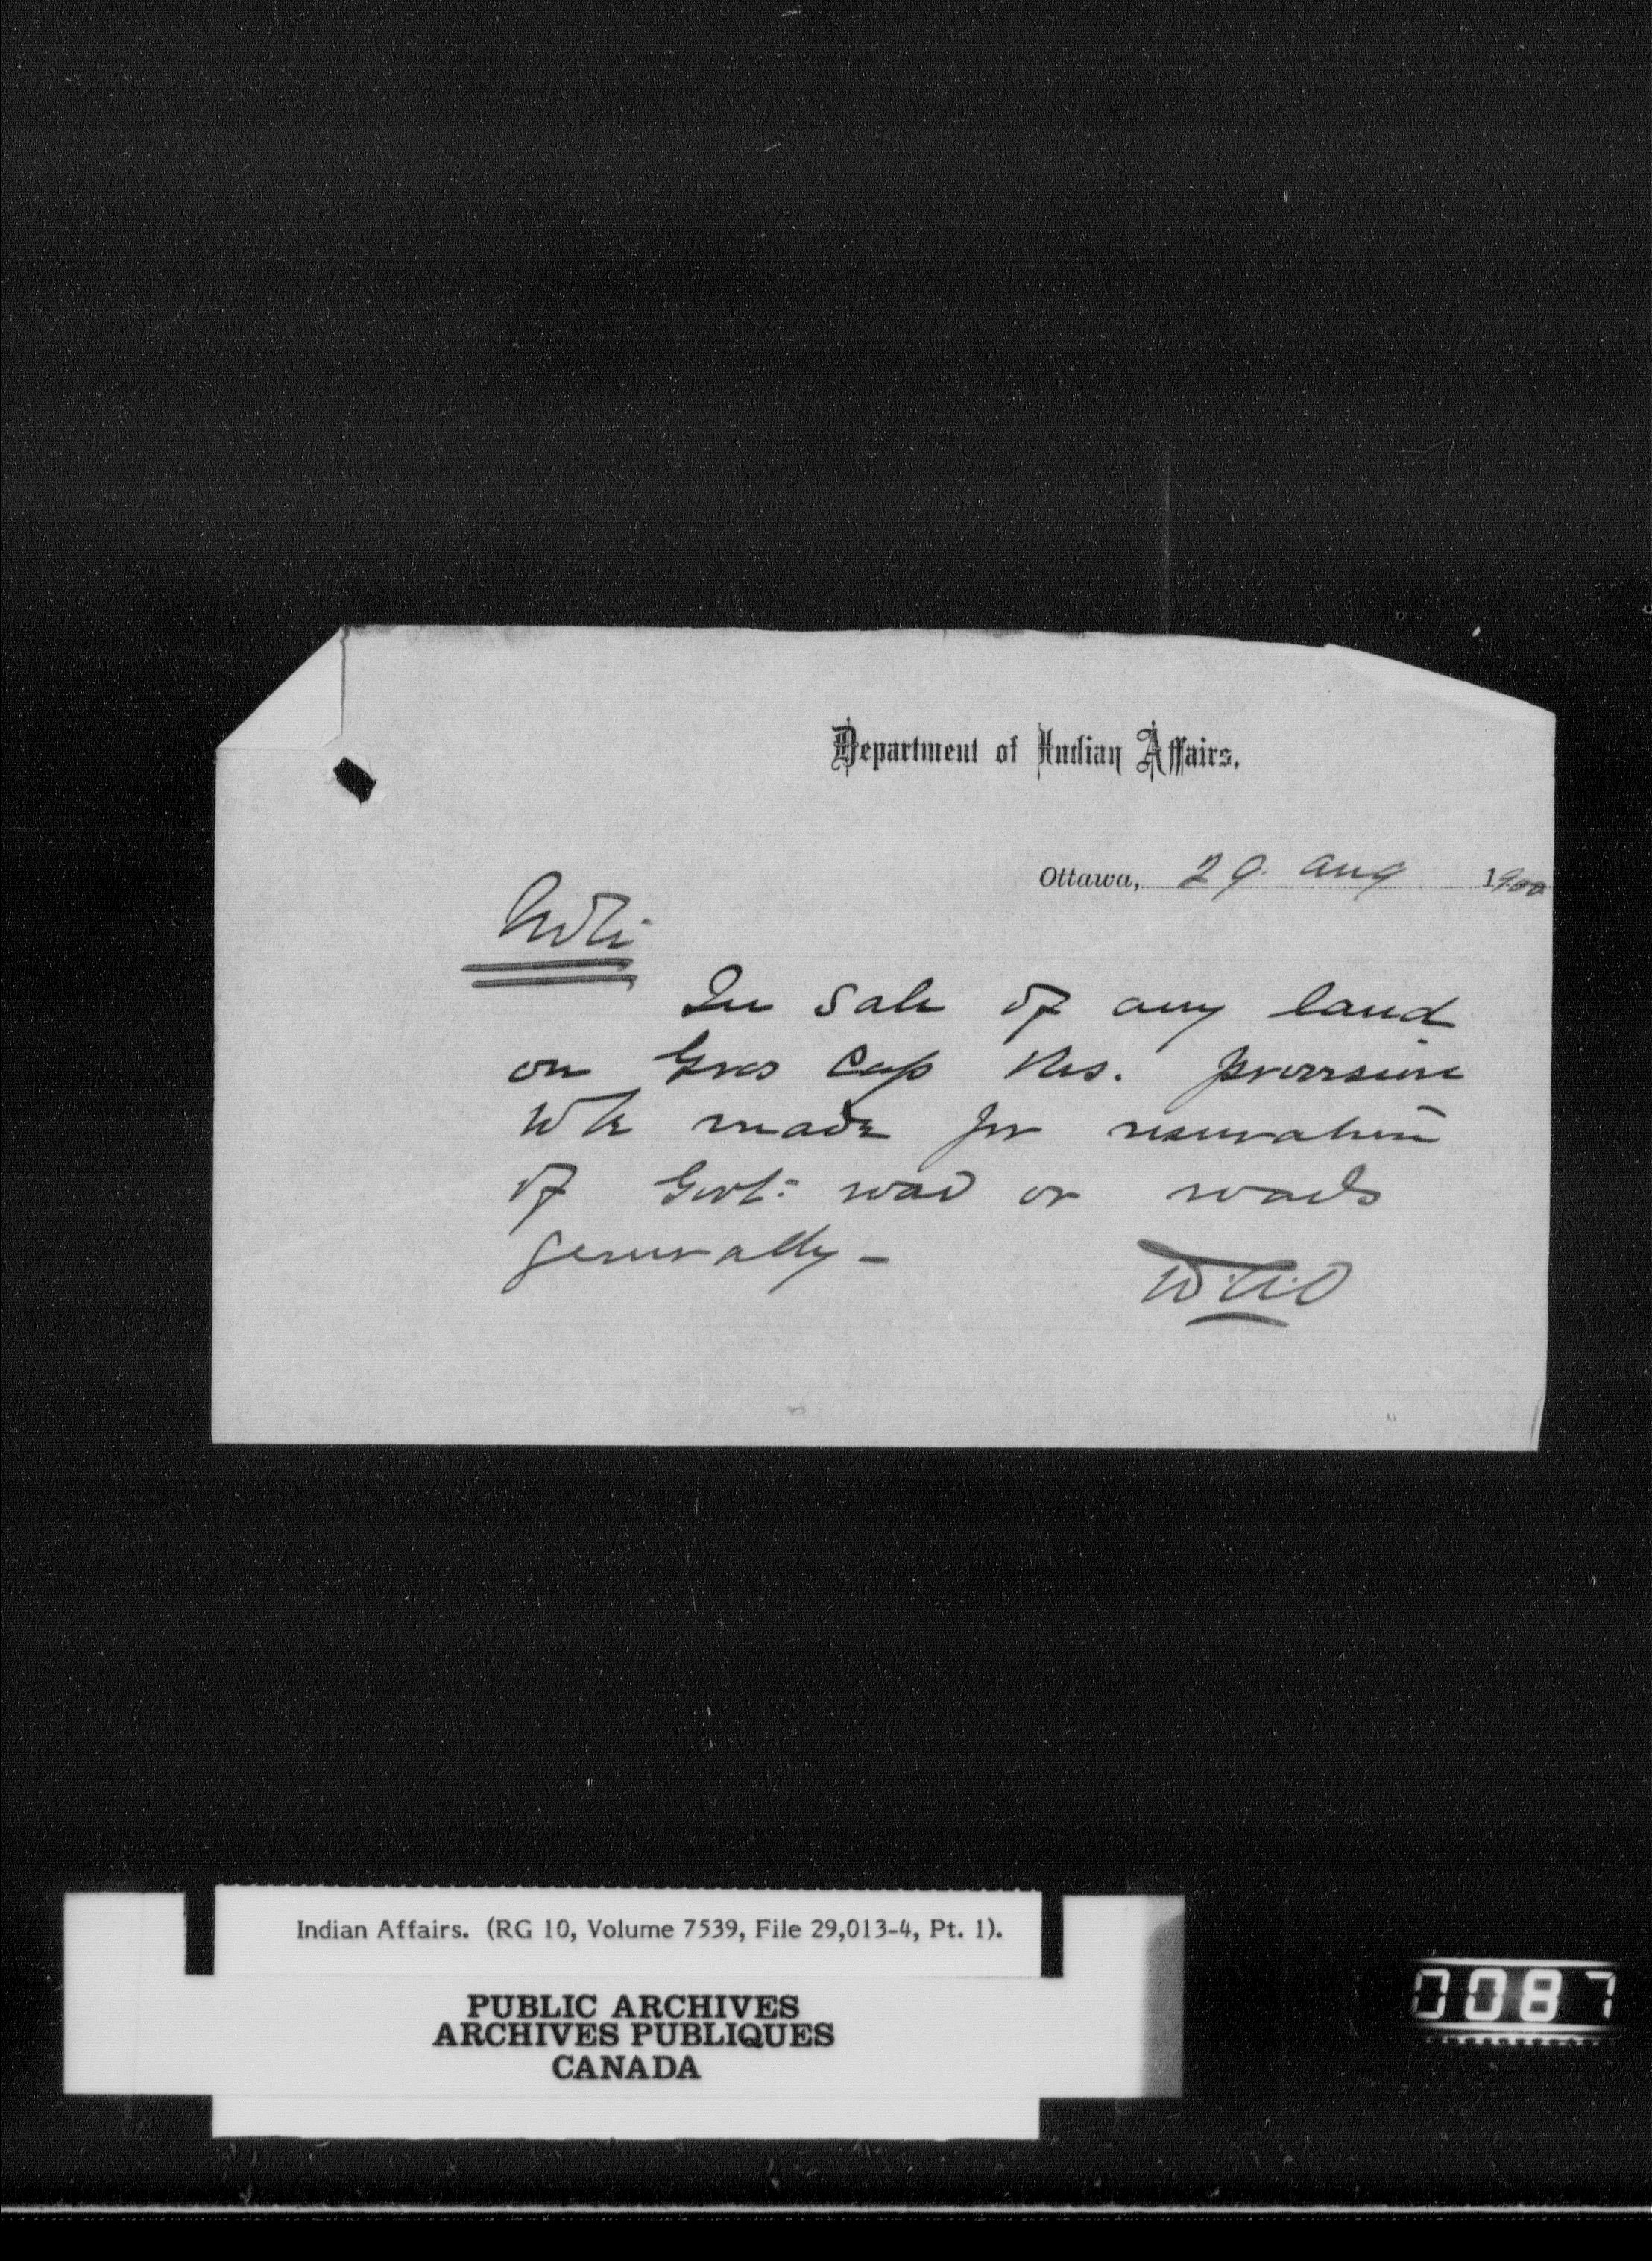 Department of Indian Affairs.
Ottawa, 29. Aug 1900
Note
In sale of any land
on Gros Cap Res. provision
to be made for reservation
of Govt: road or roads
generally -
W.A.O
Indian Affairs. (RG 10, Volume 7539, File 29,013-4, Pt. 1).
PUBLIC ARCHIVES
ARCHIVES PUBLIQUES
CANADA
0087